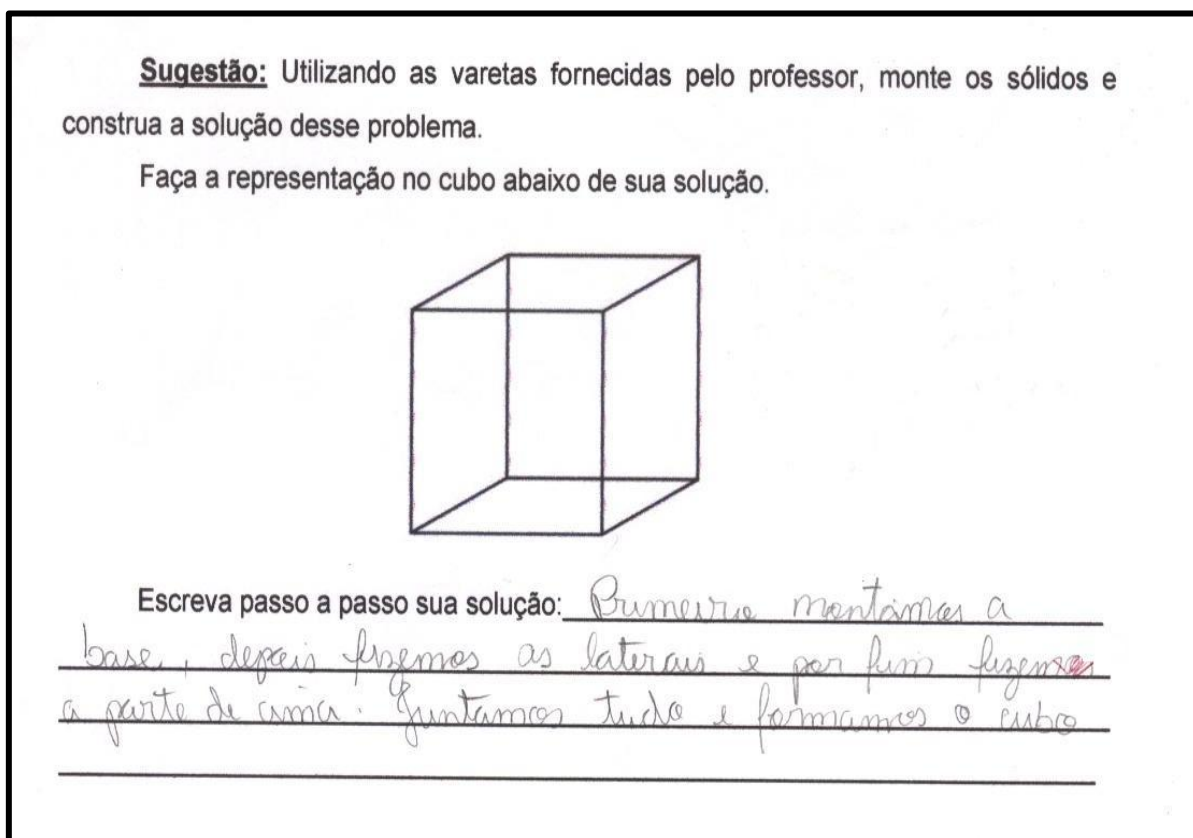 Sugestão: Utilizando as varetas fornecidas pelo professor, monte os sólidos e
construa a solução desse problema.
Faça a representação no cubo abaixo de sua solução.
Escreva passo a passo sua solução: Primeiro montamos a
base, depois fizemos as laterais e por fim fizemos
a parte de cima. Juntamos tudo e formamos o cubo